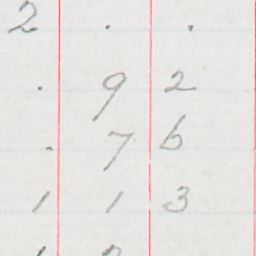 2 . .
. 9 2
. 7 6
1 1 3